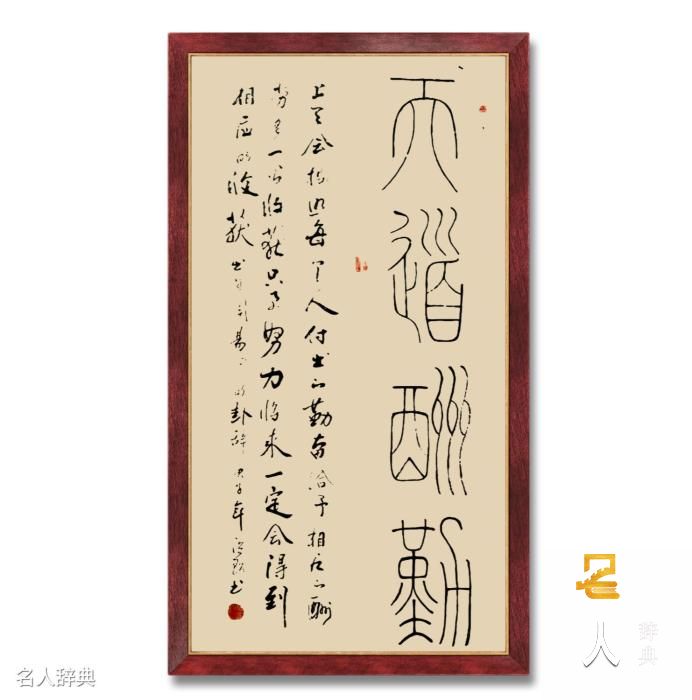 天道酬勤
上天会按照每个人付出的勤奋给予相应的酬
劳多一分收获只要努力将来一定会得到
相应的收获出自 的卦辞 庚子年 书
名人辞典
名人辞典